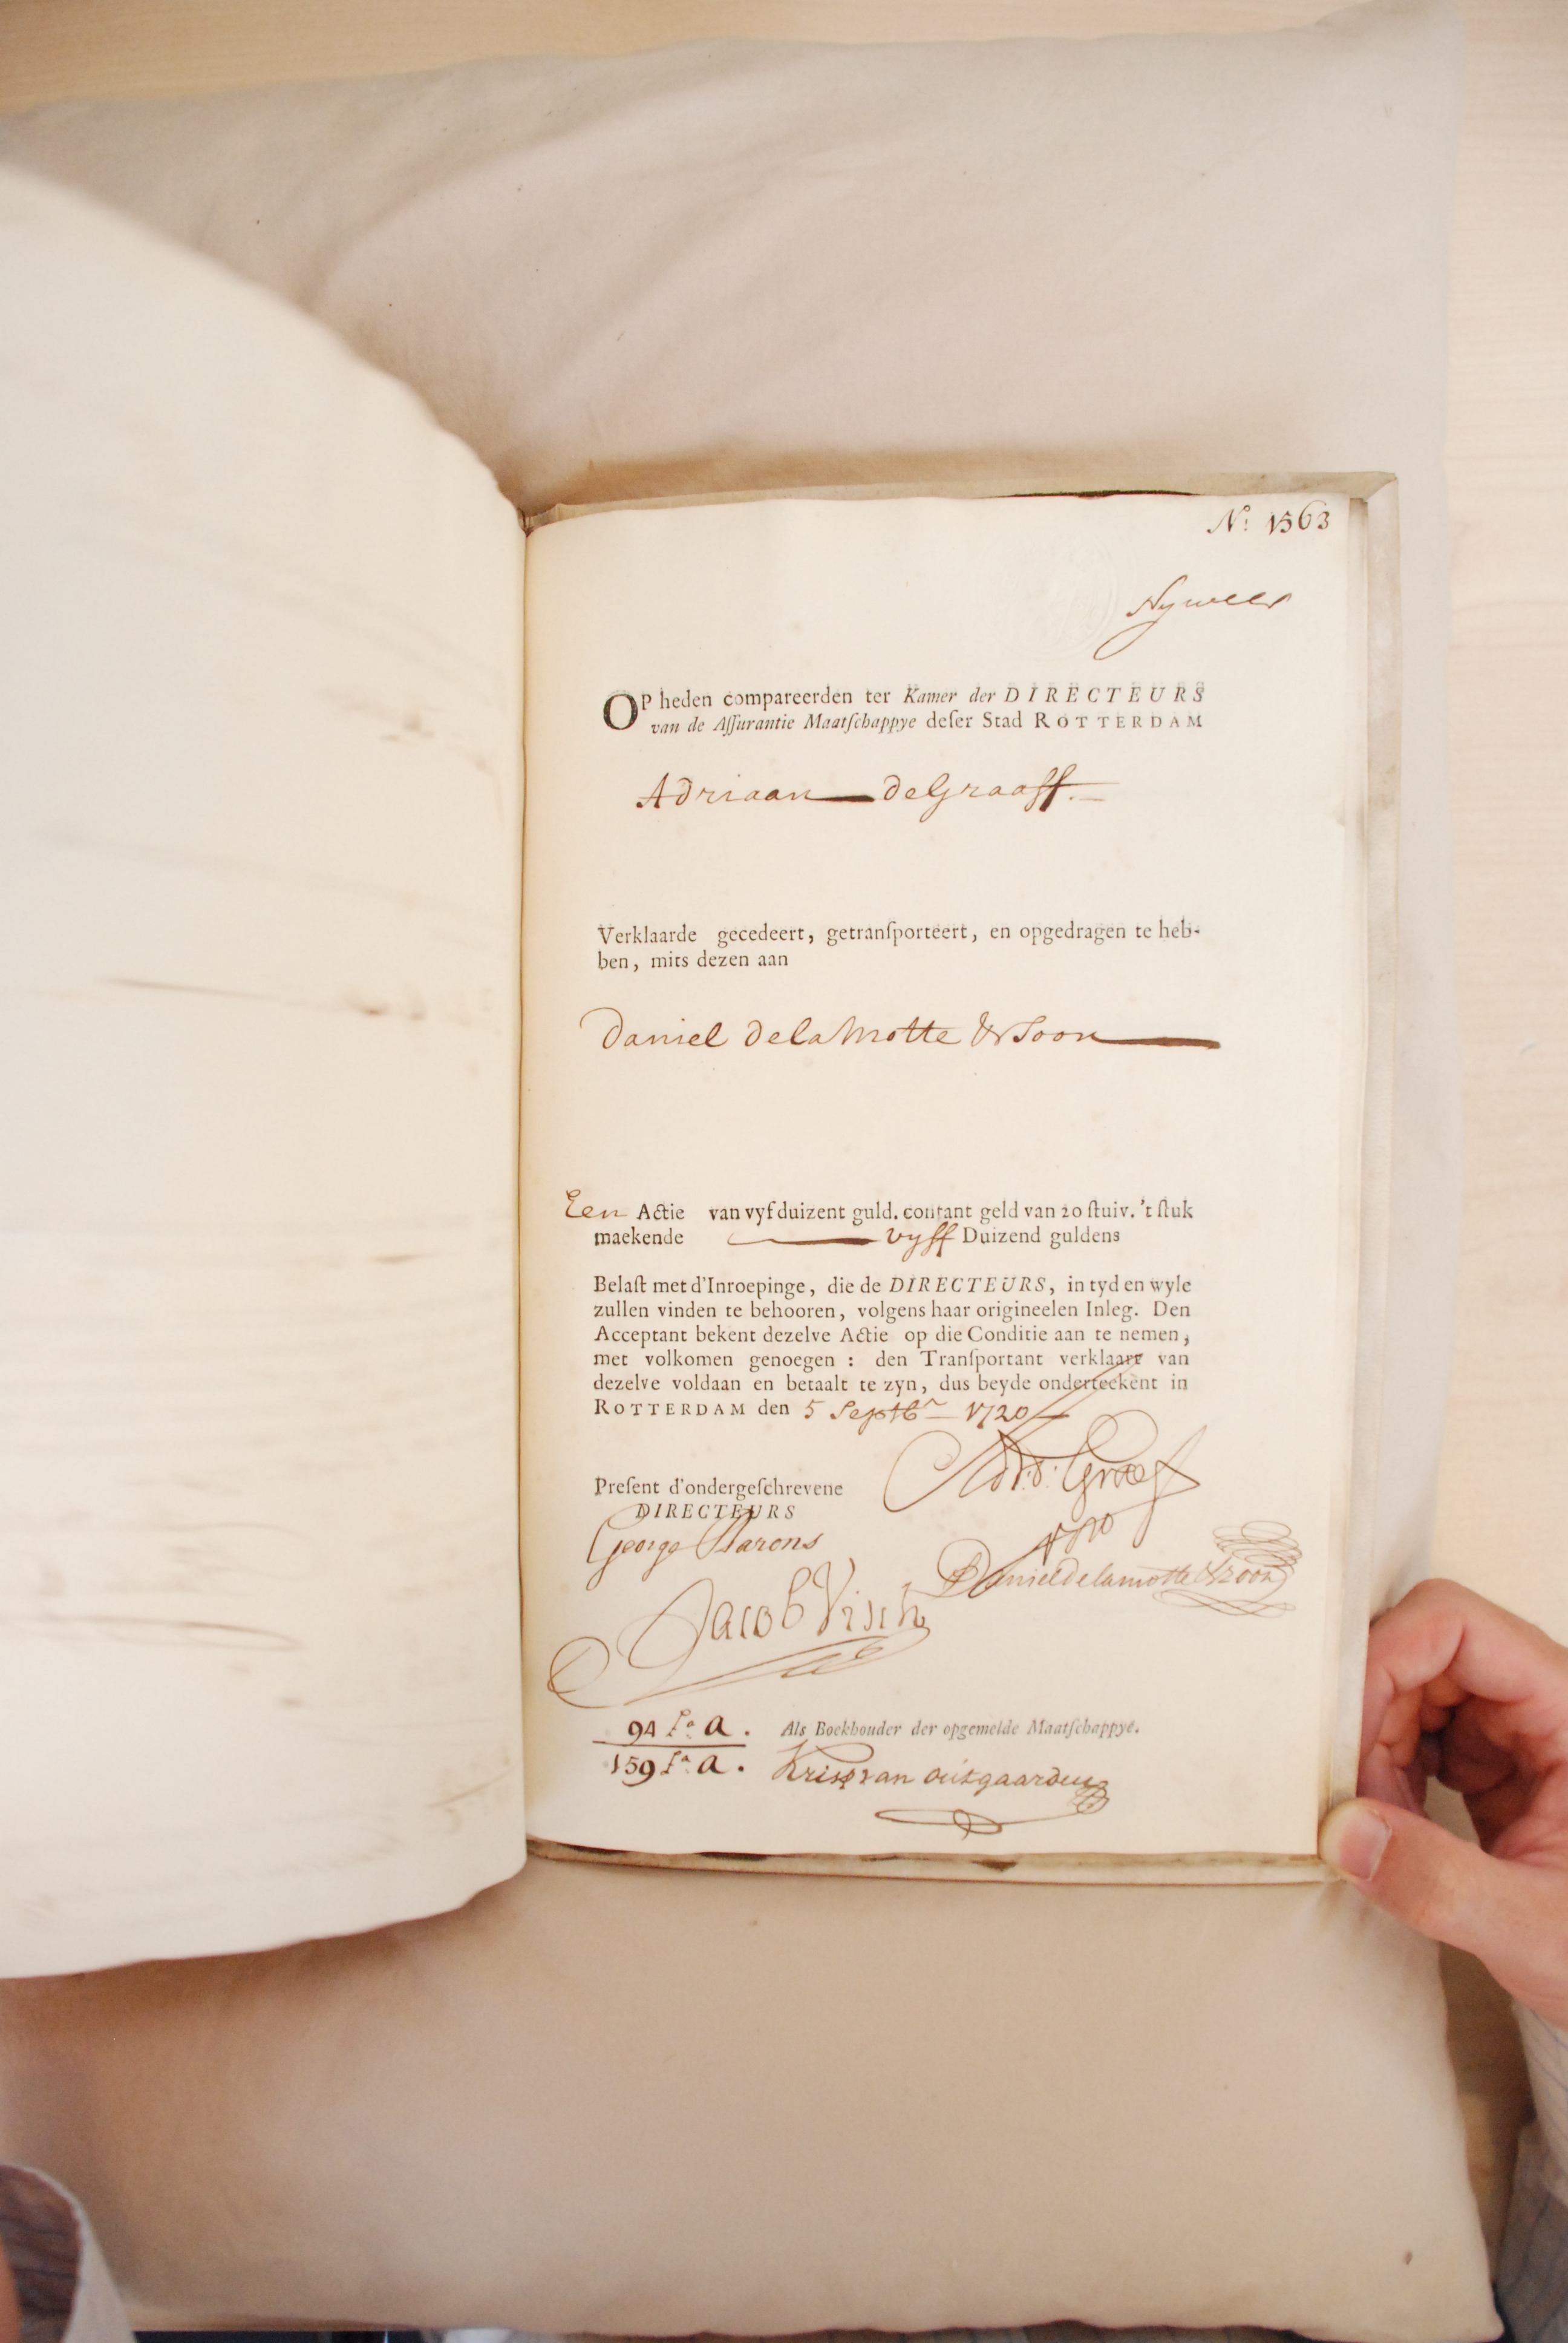 N.º 1563
Nyweer
OP heden compareerden ter Kamer der DIRECTEURS
van de Assurantie Maatschappye deser Stad ROTTERDAM
Adriaan de Graaff.
Verklaarde gecedeert, getransporteert, en opgedragen te heb-
ben, mits dezen aan
Daniel dela Motte & Soon
Een Actie van vyf duizent guld. contant geld van 20 stuiv. 't stuk
maekende vyff Duizend guldens
Belast met d'Inroepinge, die de DIRECTEURS, in tyd en wyle
zullen vinden te behooren, volgens haar origineelen Inleg. Den
Acceptant bekent dezelve Actie op die Conditie aan te nemen,
met volkomen genoegen : den Transportant verklaart van
dezelve voldaan en betaalt te zyn, dus beyde onderteekent in
ROTTERDAM den 5 Septbr 1720
Adr. d: Graef
Present d'ondergeschrevene
DIRECTEURS
George Barons
Daniel de la motte & zoon
Jacob Visch
94 Fo a. Als Boekhouder der opgemelde Maatschappye.
159 Fo a. Krisp van outgaarden